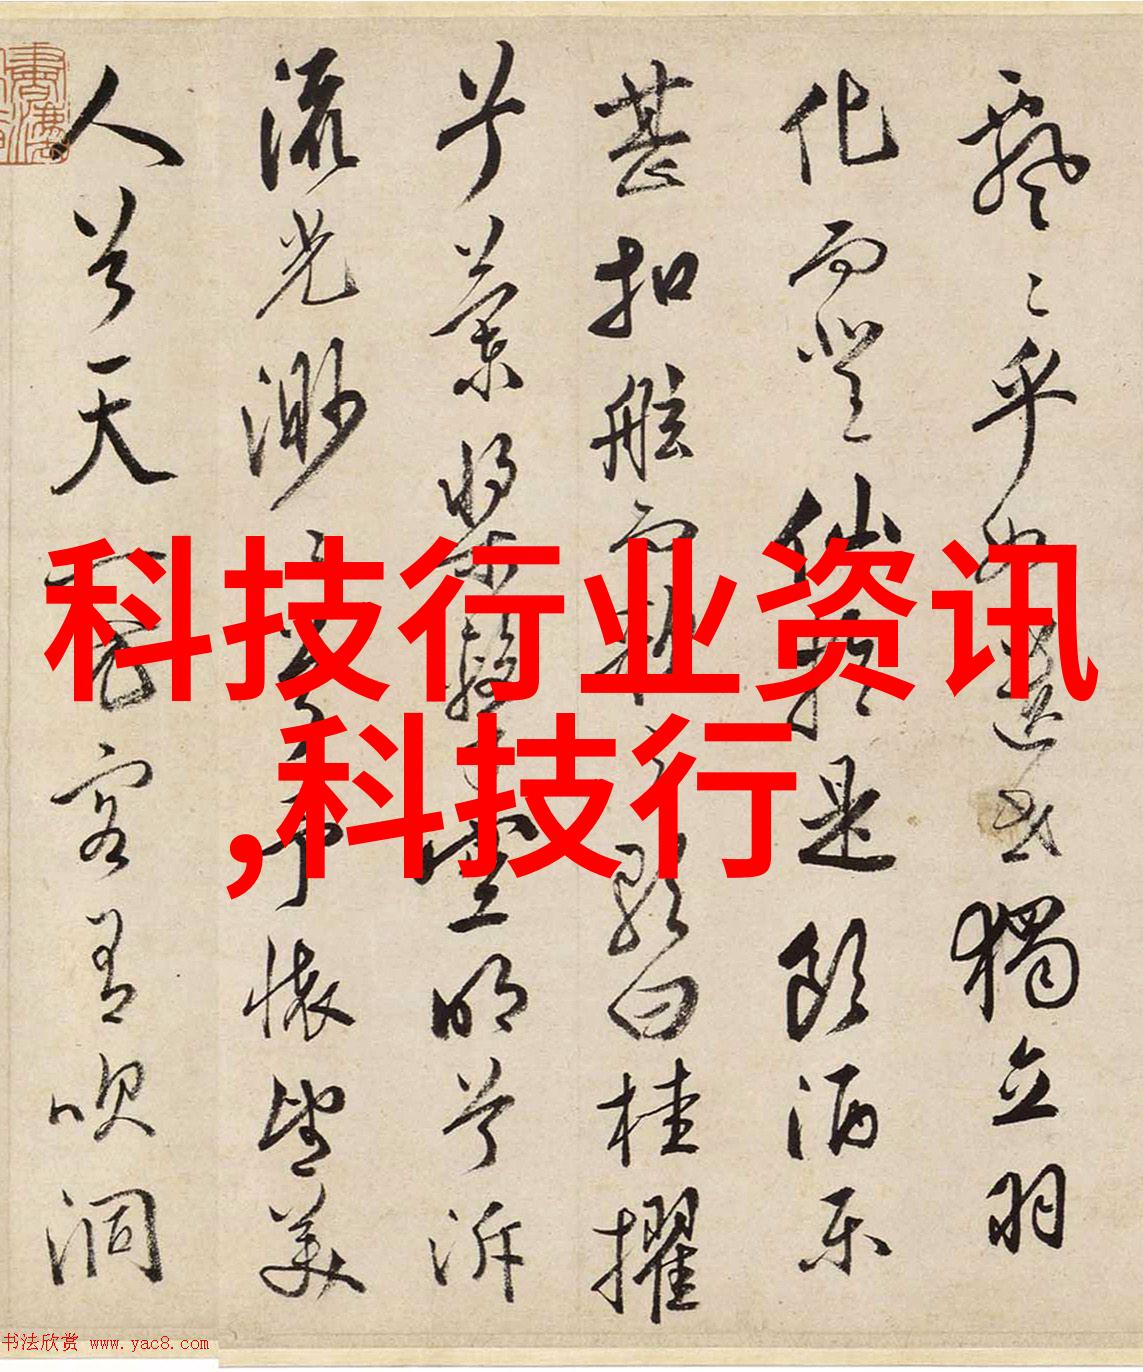 飄〻乎如遺世獨立羽
化而登仙於是飲酒樂
甚扣舷而歌之歌曰桂擢
兮蘭槳擊空明兮泝
流光渺〻兮予懷望美
人兮天一方客有吹洞
科技行业资讯
,科技行
书法欣赏 www.yac8.com